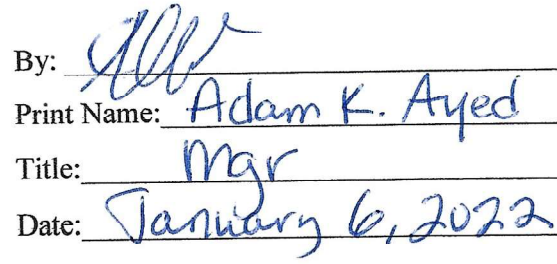 By:
Print Name: Adam K. Ayed
Title: Mgr
Date: January 6, 2022